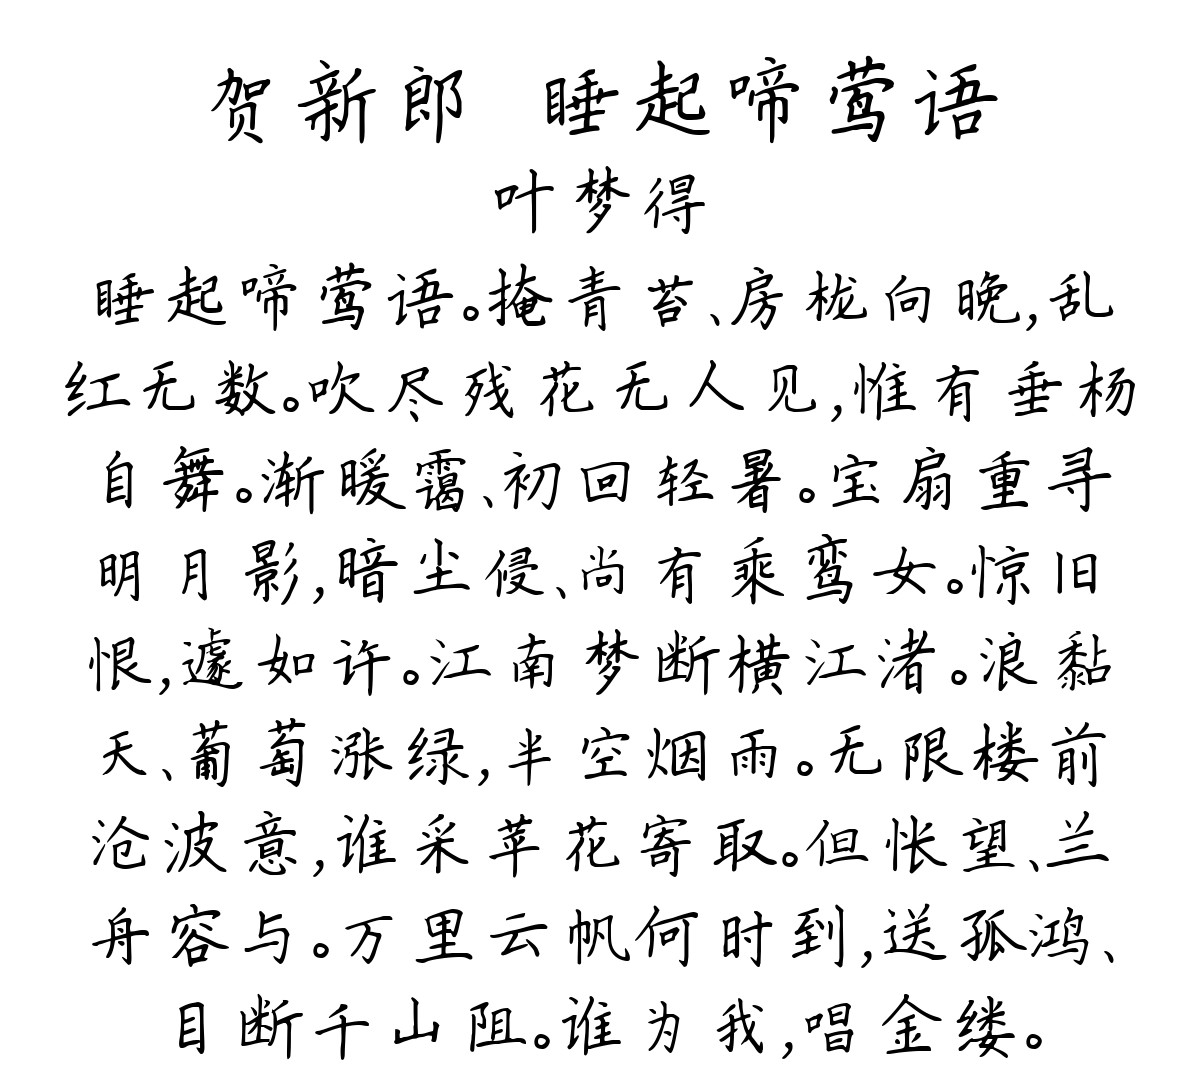 贺新郎 睡起啼莺语
叶梦得
睡起啼莺语。掩青苔、房栊向晚,乱
红无数。吹尽残花无人见,惟有垂杨
自舞。渐暖霭、初回轻暑。宝扇重寻
明月影,暗尘侵、尚有乘鸾女。惊旧
恨,遽如许。江南梦断横江渚。浪黏
天、葡萄涨绿,半空烟雨。无限楼前
沧波意,谁采苹花寄取。但怅望、兰
舟容与。万里云帆何时到,送孤鸿、
目断千山阻。谁为我,唱金缕。